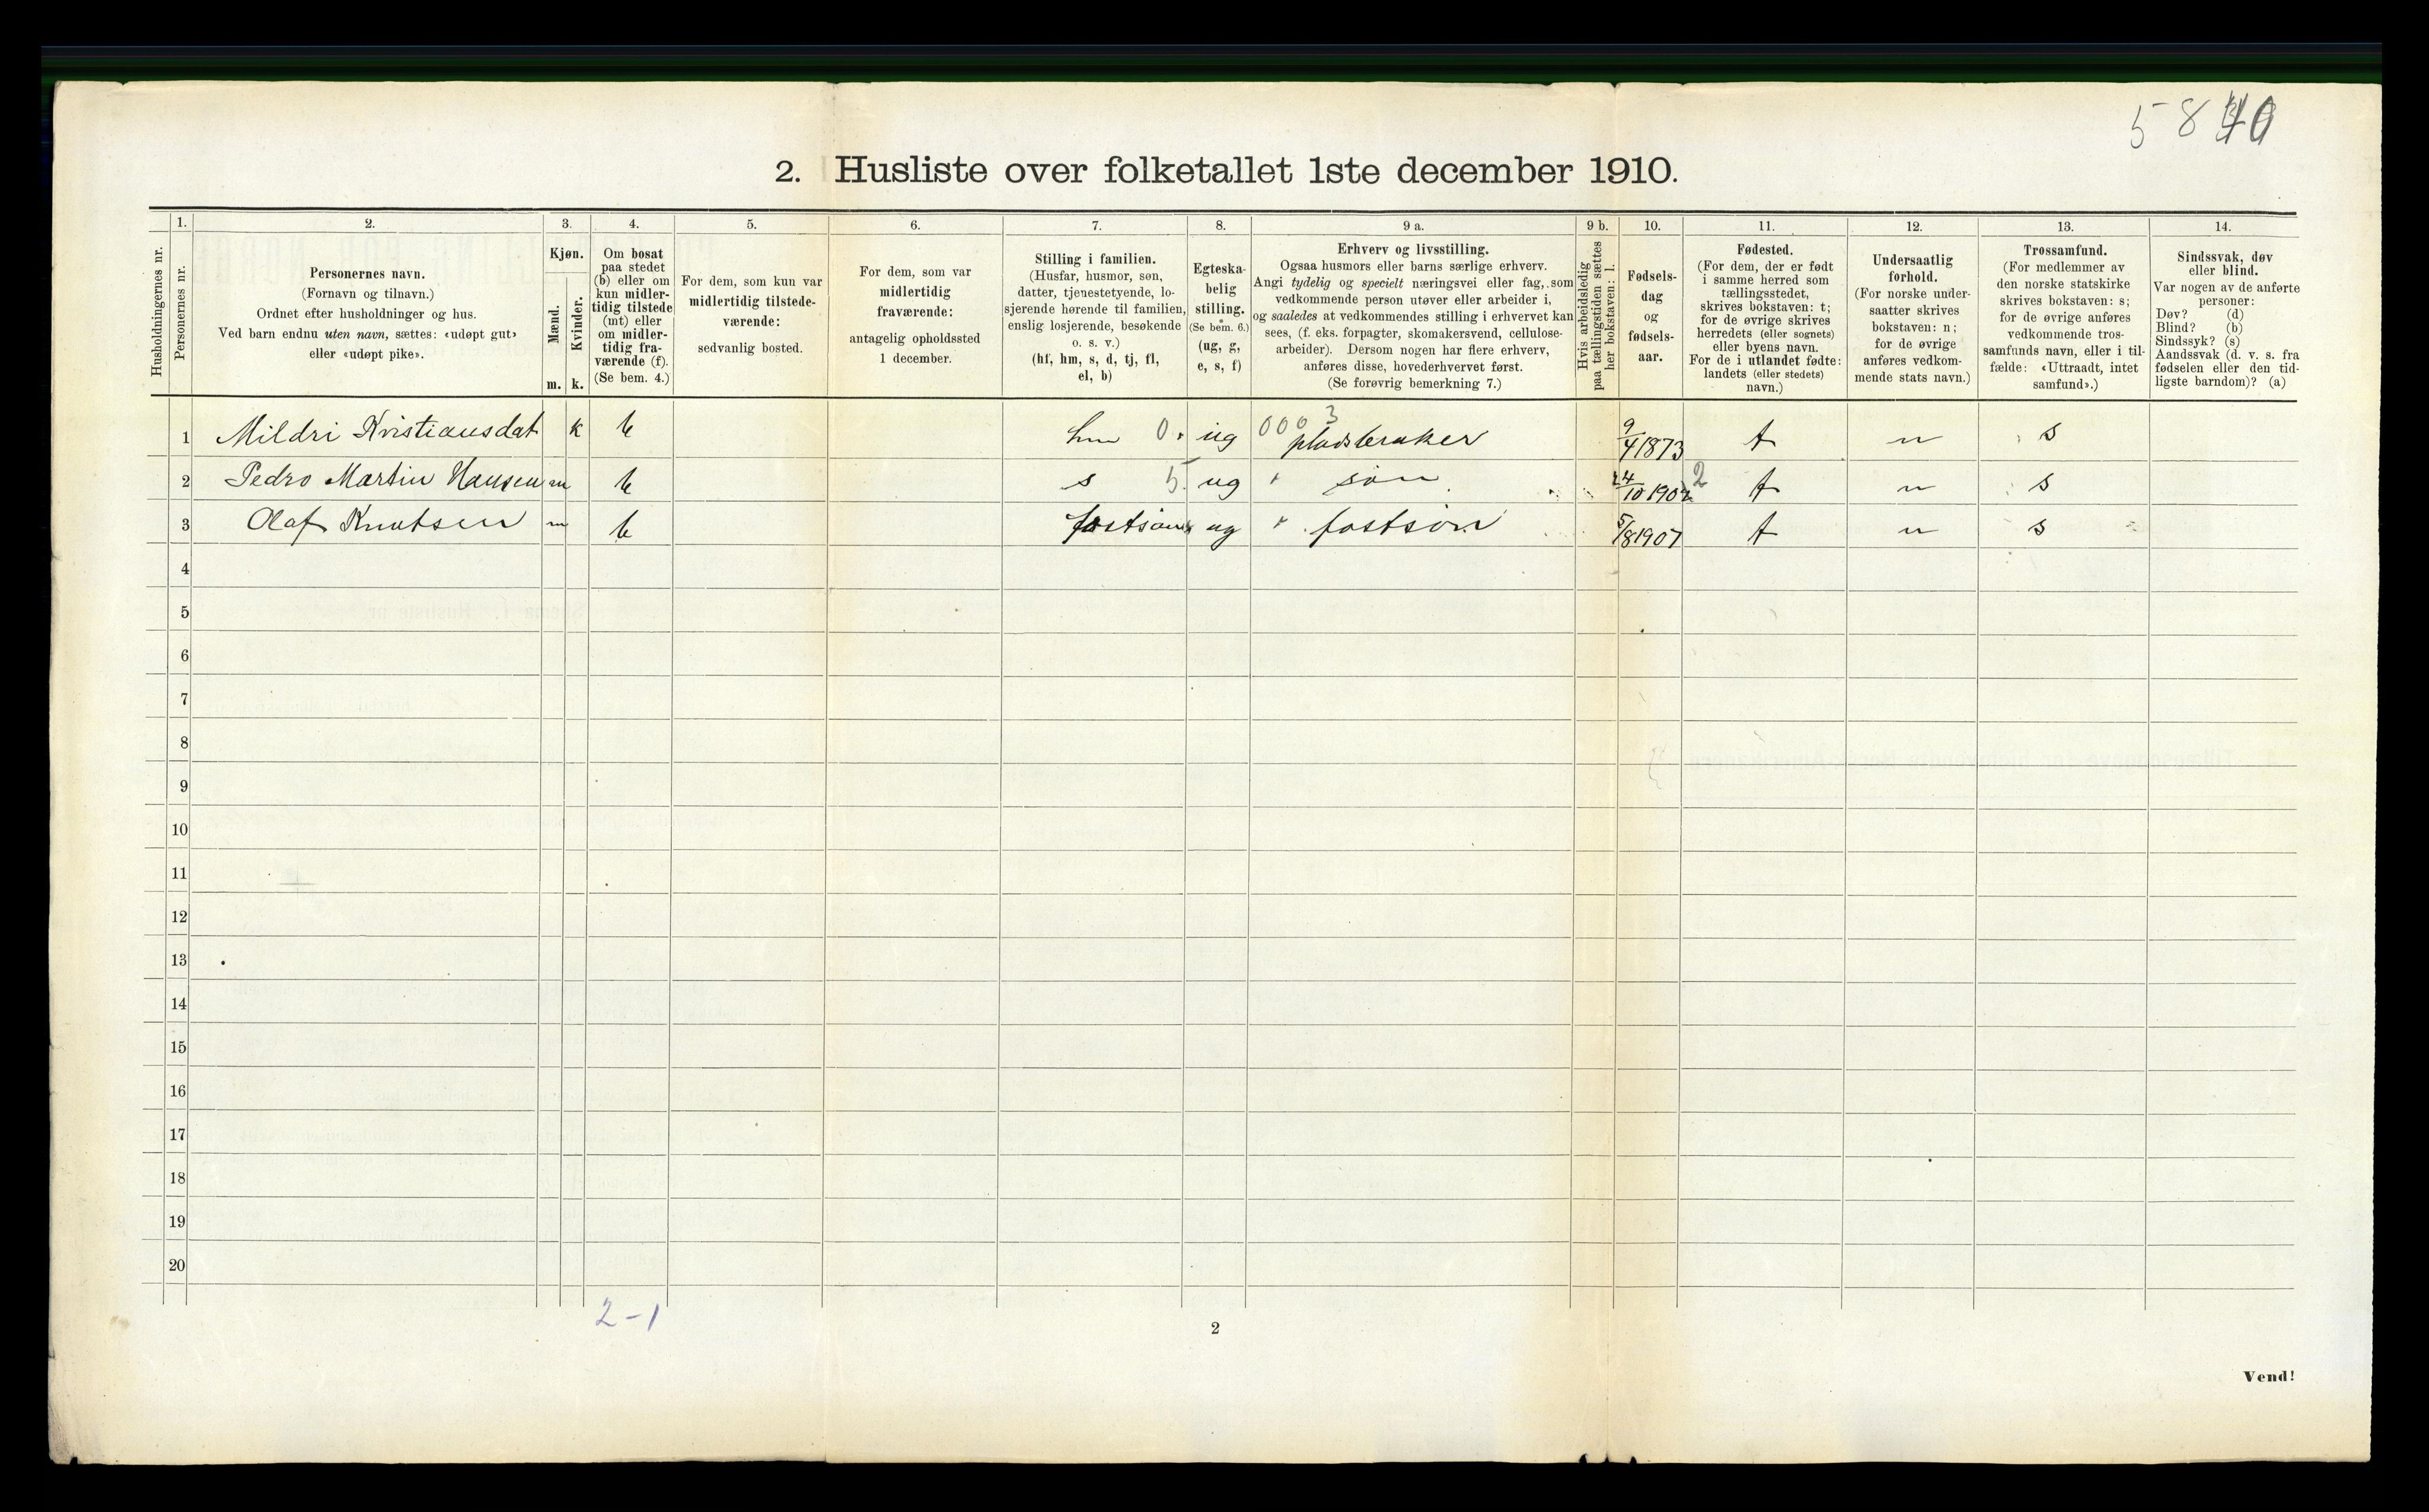 58
2. Husliste over folketallet 1ste december 1910.
Husholdningernes nr.
1.
Personernes nr.
2.
Personernes navn.
(Fornavn og tilnavn.)
Ordnet efter husholdninger og hus.
Ved barn endnu uten navn, sættes: «udøpt gut»
eller «udøpt pike».
3.
Kjøn.
Mænd.
Kvinder.
m. k.
4.
Om bosat
paa stedet
(b) eller om
kun midler-
tidig tilstede
(mt) eller
om midler-
tidig fra-
værende (f).
(Se bem. 4.)
5.
For dem, som kun var
midlertidig tilstede-
værende:
sedvanlig bosted.
6.
For dem, som var
midlertidig
fraværende:
antagelig opholdssted
1 december.
7.
Stilling i familien.
(Husfar, husmor, søn,
datter, tjenestetyende, lo-
sjerende hørende til familien,
enslig losjerende, besøkende
o. s. v.)
(hf, hm, s, d, tj, fl,
el, b)
8.
Egteska-
belig
stilling.
(Se bem. 6.)
(ug, g,
e, s, f)
9 a.
Erhverv og livsstilling.
Ogsaa husmors eller barns særlige erhverv.
Angi tydelig og specielt næringsvei eller fag, som
vedkommende person utøver eller arbeider i,
og saaledes at vedkommendes stilling i erhvervet kan
sees, (f. eks. forpagter, skomakersvend, cellulose-
arbeider). Dersom nogen har flere erhverv,
anføres disse, hovederhvervet først.
(Se forøvrig bemerkning 7.)
9 b.
Hvis arbeidsledig
paa tællingstiden sættes
her bokstaven: l.
10.
Fødsels-
dag
og
fødsels-
aar.
11.
Fødested.
(For dem, der er født
i samme herred som
tællingsstedet,
skrives bokstaven: t;
for de øvrige skrives
herredets (eller sognets)
eller byens navn.
For de i utlandet fødte:
landets (eller stedets)
navn.)
12.
Undersaatlig
forhold.
(For norske under-
saatter skrives
bokstaven: n;
for de øvrige
anføres vedkom-
mende stats navn.)
13.
Trossamfund.
(For medlemmer av
den norske statskirke
skrives bokstaven: s;
for de øvrige anføres
vedkommende tros-
samfunds navn, eller i til-
fælde: «Uttraadt, intet
samfund».)
14.
Sindssvak, døv
eller blind.
Var nogen av de anførte
personer:
Døv? (d)
Blind? (b)
Sindssyk? (s)
Aandssvak (d. v. s. fra
fødselen eller den tid-
ligste barndom)? (a)
1 Mildri Kristiansdat k b hm 0 ug 000 3 pladsbruker 9/4 1873 t n s
2 Pedro Martin Hansen m b s 5 ug " søn 24/10 1902 2 t n s
3 Olaf Knutsen m b fostsøn ug " fostsøn 5/8 1907 t n s
4
5
6
7
8
9
10
11
12
13
14
15
16
17
18
19
20
2-1
2
Vend!